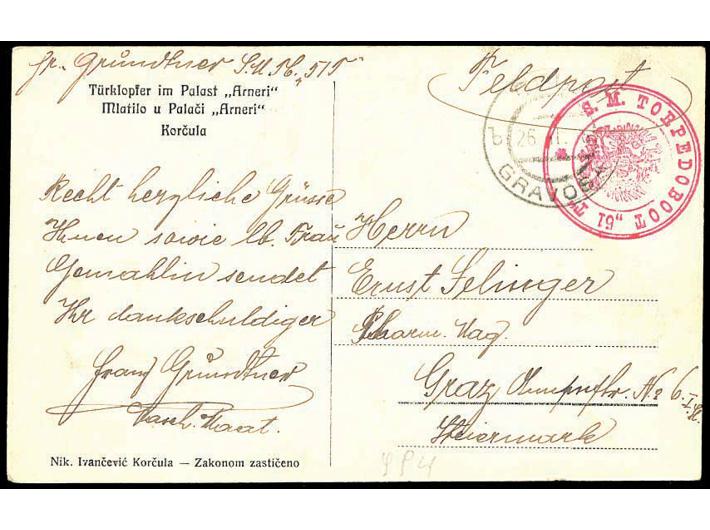 Fr. Gründtner S.M.Tb. „51T"
Türklopfer im Palast „Arneri"
Mlatilo u Palači „Arneri"
Korčula
Feldpost
S. M. TORPEDOBOOT
GRAVOSA
26
b
Recht herzliche Grüsse
Ihnen sowie lb. Frau
Gemahlin sendet
Ihr dankschuldiger
Franz Gründtner
Masch. Maat.
Herrn
Ernst Selinger
Pharm. Mag.
Graz № 6
Steiermark
Nik. Ivančević Korčula — Zakonom zastičeno